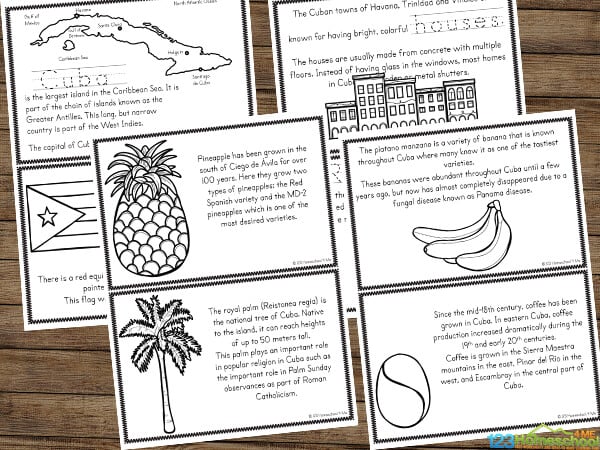 Gulf of
Mexico
Havana
North Atlantic Ocean
Santa Clara
Gulf of
Batabanó
Holguin
Caribbean Sea
Santiago
de Cuba
Cuba
is the largest island in the Caribbean Sea. It is
part of the chain of islands known as the
Greater Antilles. This long, but narrow
country is part of the West Indies.
The capital of Cub
There is a red equ
painte
This flag w
The Cuban towns of Havana, Trinidad and
known for having bright, colorful houses.
The houses are usually made from concrete with multiple
floors. Instead of having glass in the windows, most homes
in Cub den or metal shutters.
Pineapple has been grown in the
south of Ciego de Ávila for over
100 years. Here they grow two
types of pineapples; the Red
Spanish variety and the MD-2
pineapples which is one of the
most desired varieties.
The royal palm (Reistonea regia) is
the national tree of Cuba. Native
to the island, it can reach heights
of up to 50 meters tall.
This palm plays an important role
in popular religion in Cuba such as
the important role in Palm Sunday
observances as part of Roman
Catholicism.
The platano manzano is a variety of banana that is known
throughout Cuba where many know it as one of the tastiest
varieties.
These bananas were abundant throughout Cuba until a few
years ago, but now has almost completely disappeared due to a
fungal disease known as Panama disease.
Since the mid-18th century, coffee has been
grown in Cuba. In eastern Cuba, coffee
production increased dramatically during the
19th and early 20th centuries.
Coffee is grown in the Sierra Maestra
mountains in the east, Pinar del Rio in the
west, and Escambray in the central part of
Cuba.
123Homeschool4ME.com